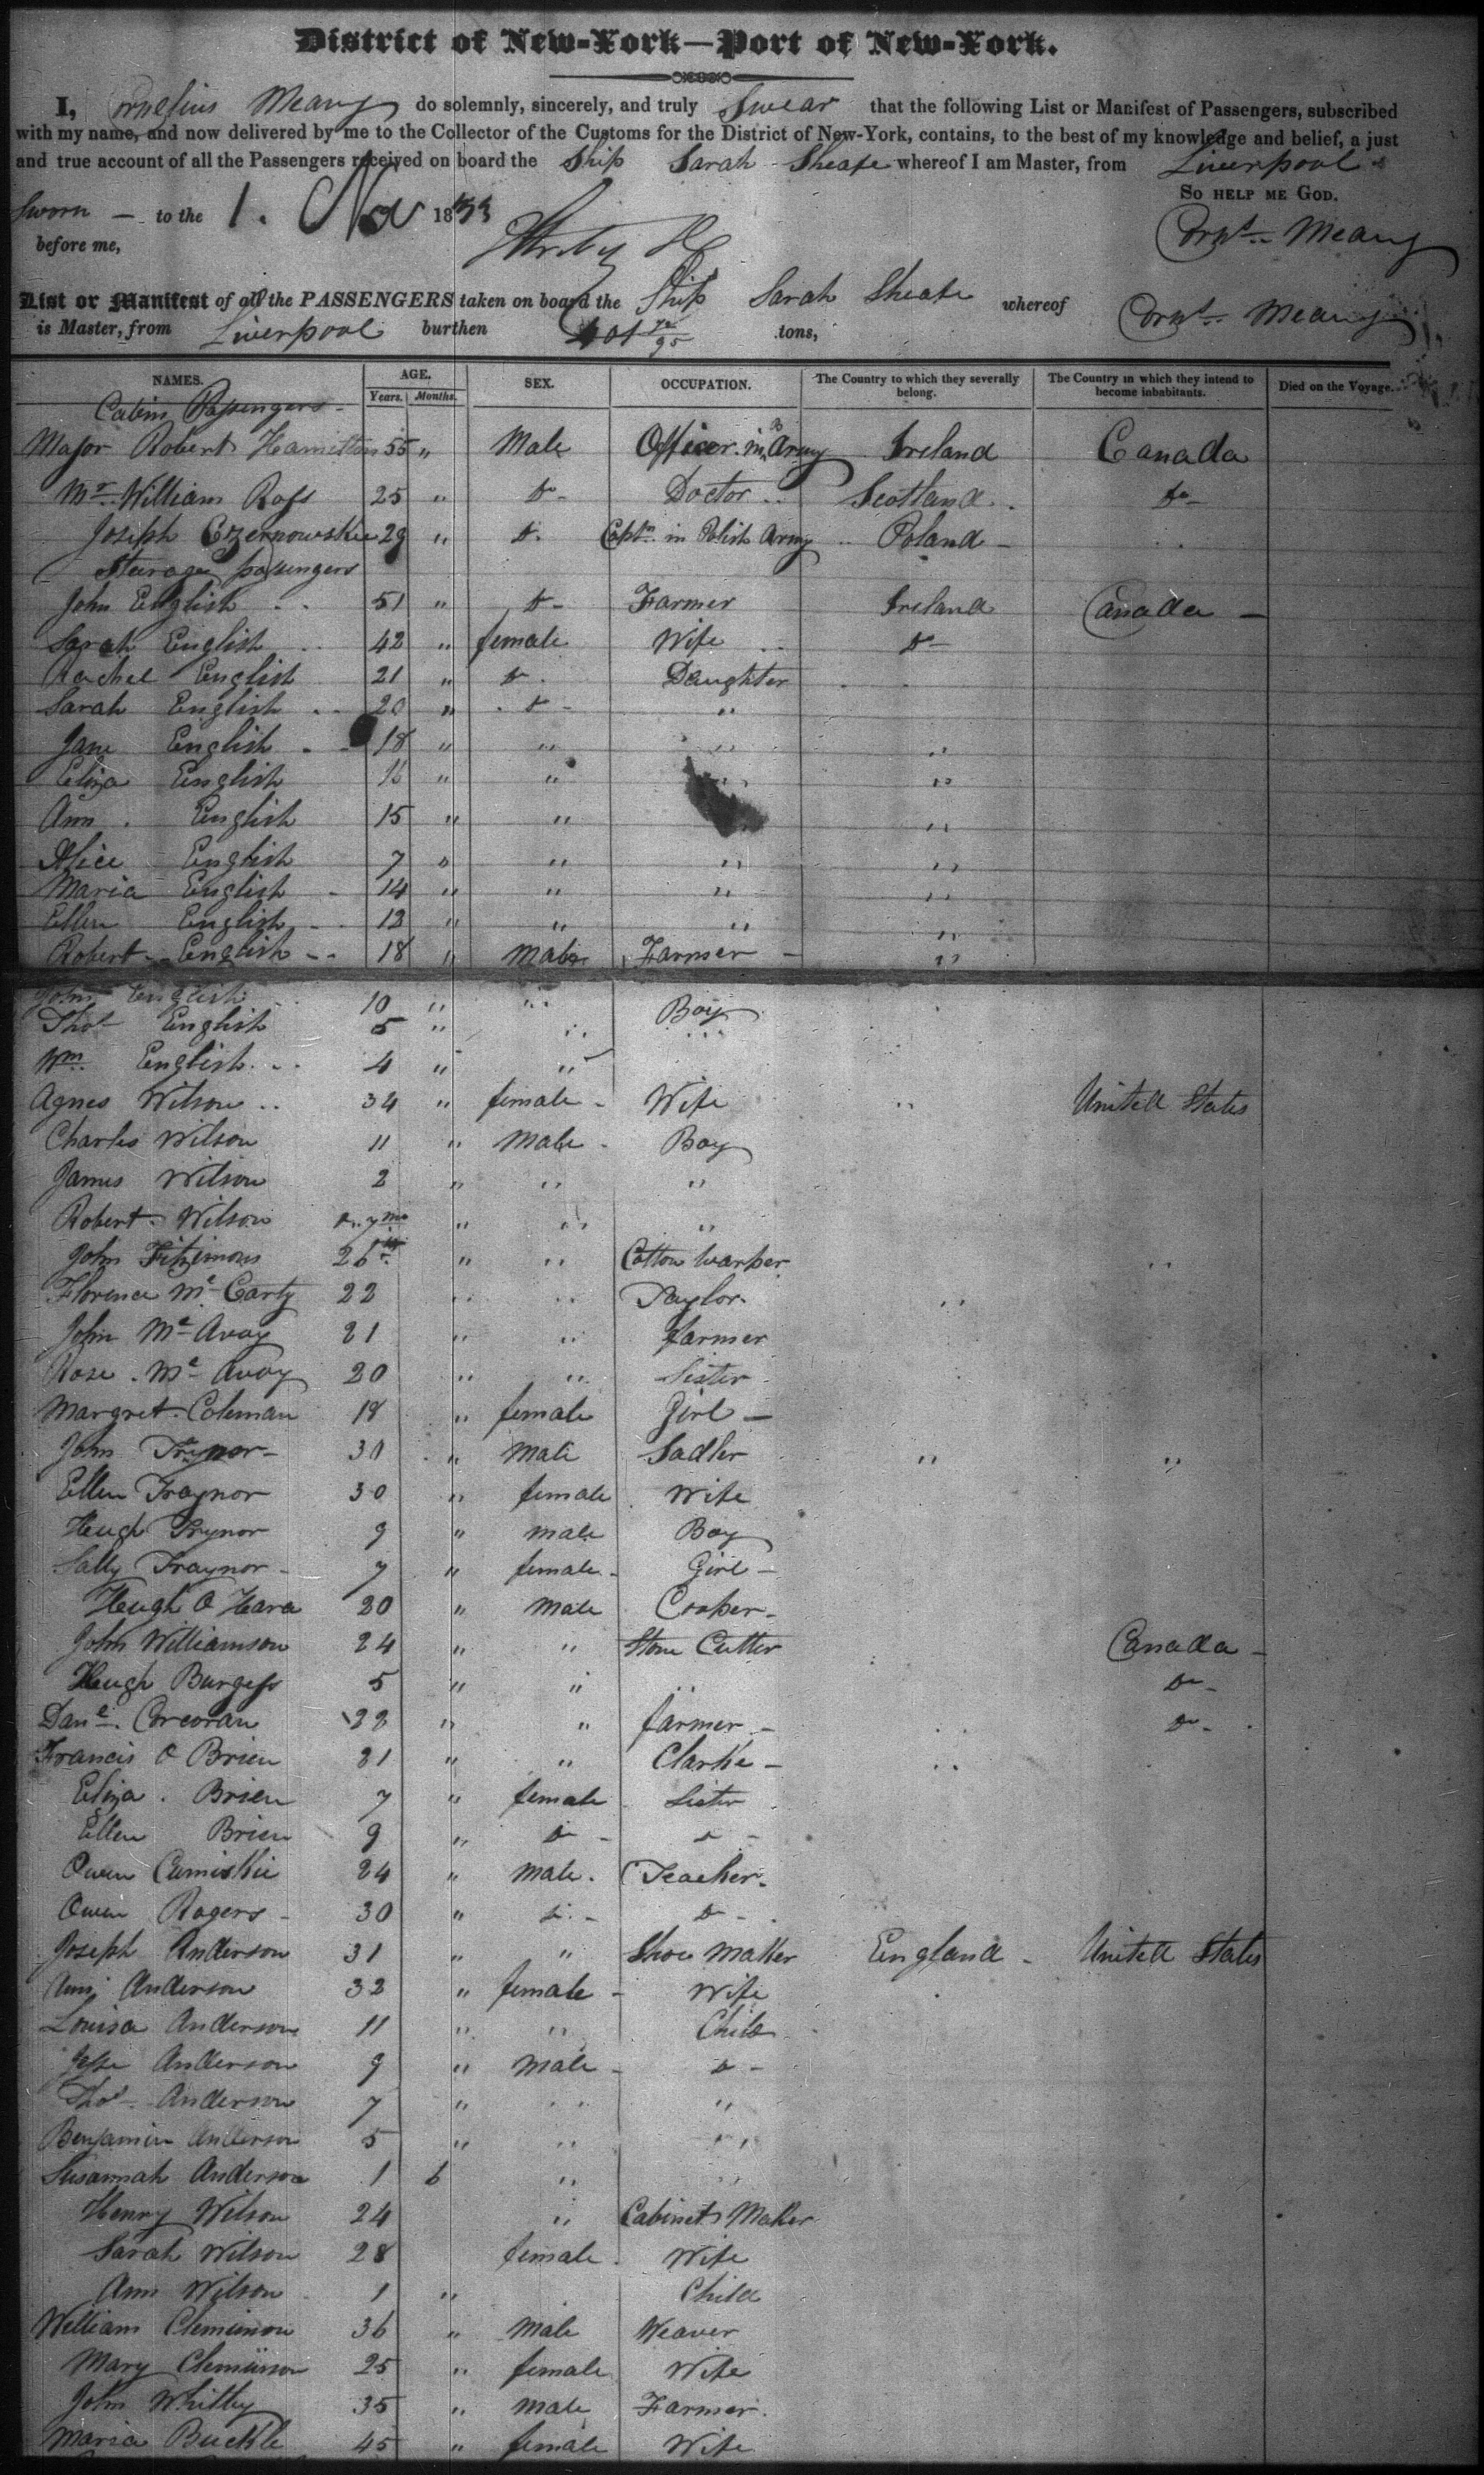 District of New-York—Port of New-York.
I, Cornelius Meany do solemnly, sincerely, and truly Swear that the following List or Manifest of Passengers, subscribed
with my name, and now delivered by me to the Collector of the Customs for the District of New-York, contains, to the best of my knowledge and belief, a just
and true account of all the Passengers received on board the Ship Sarah Sheafe whereof I am Master, from Liverpool
So help me God.
Sworn — to the 1. Nov 1833
before me,
Corns. Meany
List or Manifest of all the PASSENGERS taken on board the Ship Sarah Sheafe whereof Corns. Meany
is Master, from Liverpool burthen 401 95 tons,
NAMES. AGE. Years. Months. SEX. OCCUPATION. The Country to which they severally belong. The Country in which they intend to become inhabitants. Died on the Voyage.
Cabin Passengers -
Major Robert Hamilton 55 " Male Officer in B Army Ireland Canada
Mr. William Ross 25 " Do Doctor Scotland Do
Joseph Czernowskie 29 " Do Captn. in Polish Army Poland
Steerage passengers
John English 51 " Do Farmer Ireland Canada —
Sarah English 42 " female Wife Do
Rachel English 21 " Do Daughter
Sarah English 20 " Do "
Jane English 18 " " " "
Eliza English 16 " " " "
Ann English 15 " " "
Alice English 7 " " " "
Maria English 14 " " " "
Ellen English 12 " " " "
Robert English 18 " Male Farmer "
John English 10 " " Boy
Thos English 5 " " "
Wm. English 4 " "
Agnes Wilson 34 " female Wife " United States
Charles Wilson 11 " Male Boy
James Wilson 2 " " "
Robert Wilson 7 mo " " "
John Fitzimons 26 " " Cotton Warper "
Florence Mc Carty 22 " " Taylor "
John Mc Avoy 21 " " farmer
Rose Mc Avoy 20 " " Sister
Margret Coleman 18 " female Girl —
John Trynor 30 " Male Sadler " "
Ellen Traynor 30 " female Wife
Hugh Trynor 9 " male Boy
Sally Traynor 7 " female Girl —
Hugh O Hara 20 " Male Cooper
John Williamson 24 " " Stone Cutter Canada —
Hugh Burgess 5 " " " Do
Danl. Corcoran 22 " " farmer " Do
Francis O Brien 21 " " Clarke — "
Eliza Brien 7 " female Sister
Ellen Brien 9 " Do Do
Owen Cumiskie 24 " male Teacher
Owen Rogers 30 " Do Do
Joseph Anderson 31 " " Shoe Maker England United States
Ann Anderson 32 " female Wife
Louisa Anderson 11 " " Child
Jesse Anderson 9 " Male Do
Thos Anderson 7 " " "
Benjamin Anderson 5 " " "
Susannah Anderson 1 6 " "
Henry Wilson 24 " Cabinet Maker
Sarah Wilson 28 female Wife
Ann Wilson 1 " Child
William Cleminson 36 " Male Weaver
Mary Cleminson 25 " female Wife
John Whitby 35 " male Farmer
Maria Buckle 45 " female Wife